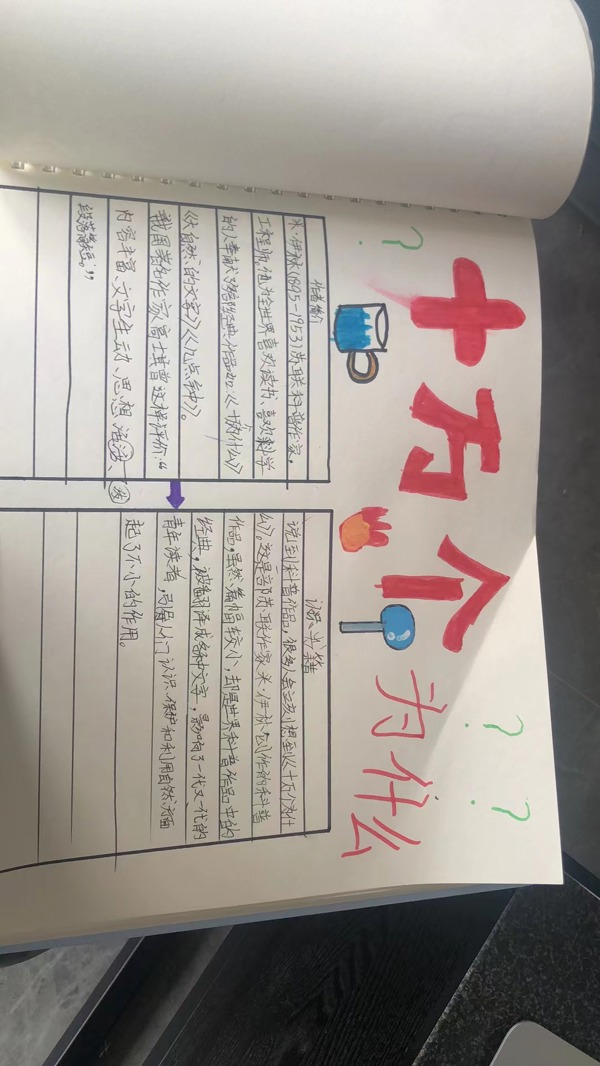 十万个为什么
? ? ?
作者简介
米·伊林(1895-1953)苏联科普作家,
工程师。他为全世界喜欢读书、喜欢科学
的人奉献大了许经典作品如《十万个为什么》
《大自然的文字》《几点钟》。
我国著名作家高士其曾这样评价:“
内容丰富、文字生动、思想活泼、
段落简短。”
说书籍
说到科普作品,很多人会立刻想到《十万个为什
么》。这是一部苏联作家米·伊林创作的科普
作品,虽然篇幅较小,却是世界科普作品中的
经典,被翻译成各种文字,影响了一代又一代的
青年读者,引导人们认识、保护和利用自然方面
起了不小的作用。